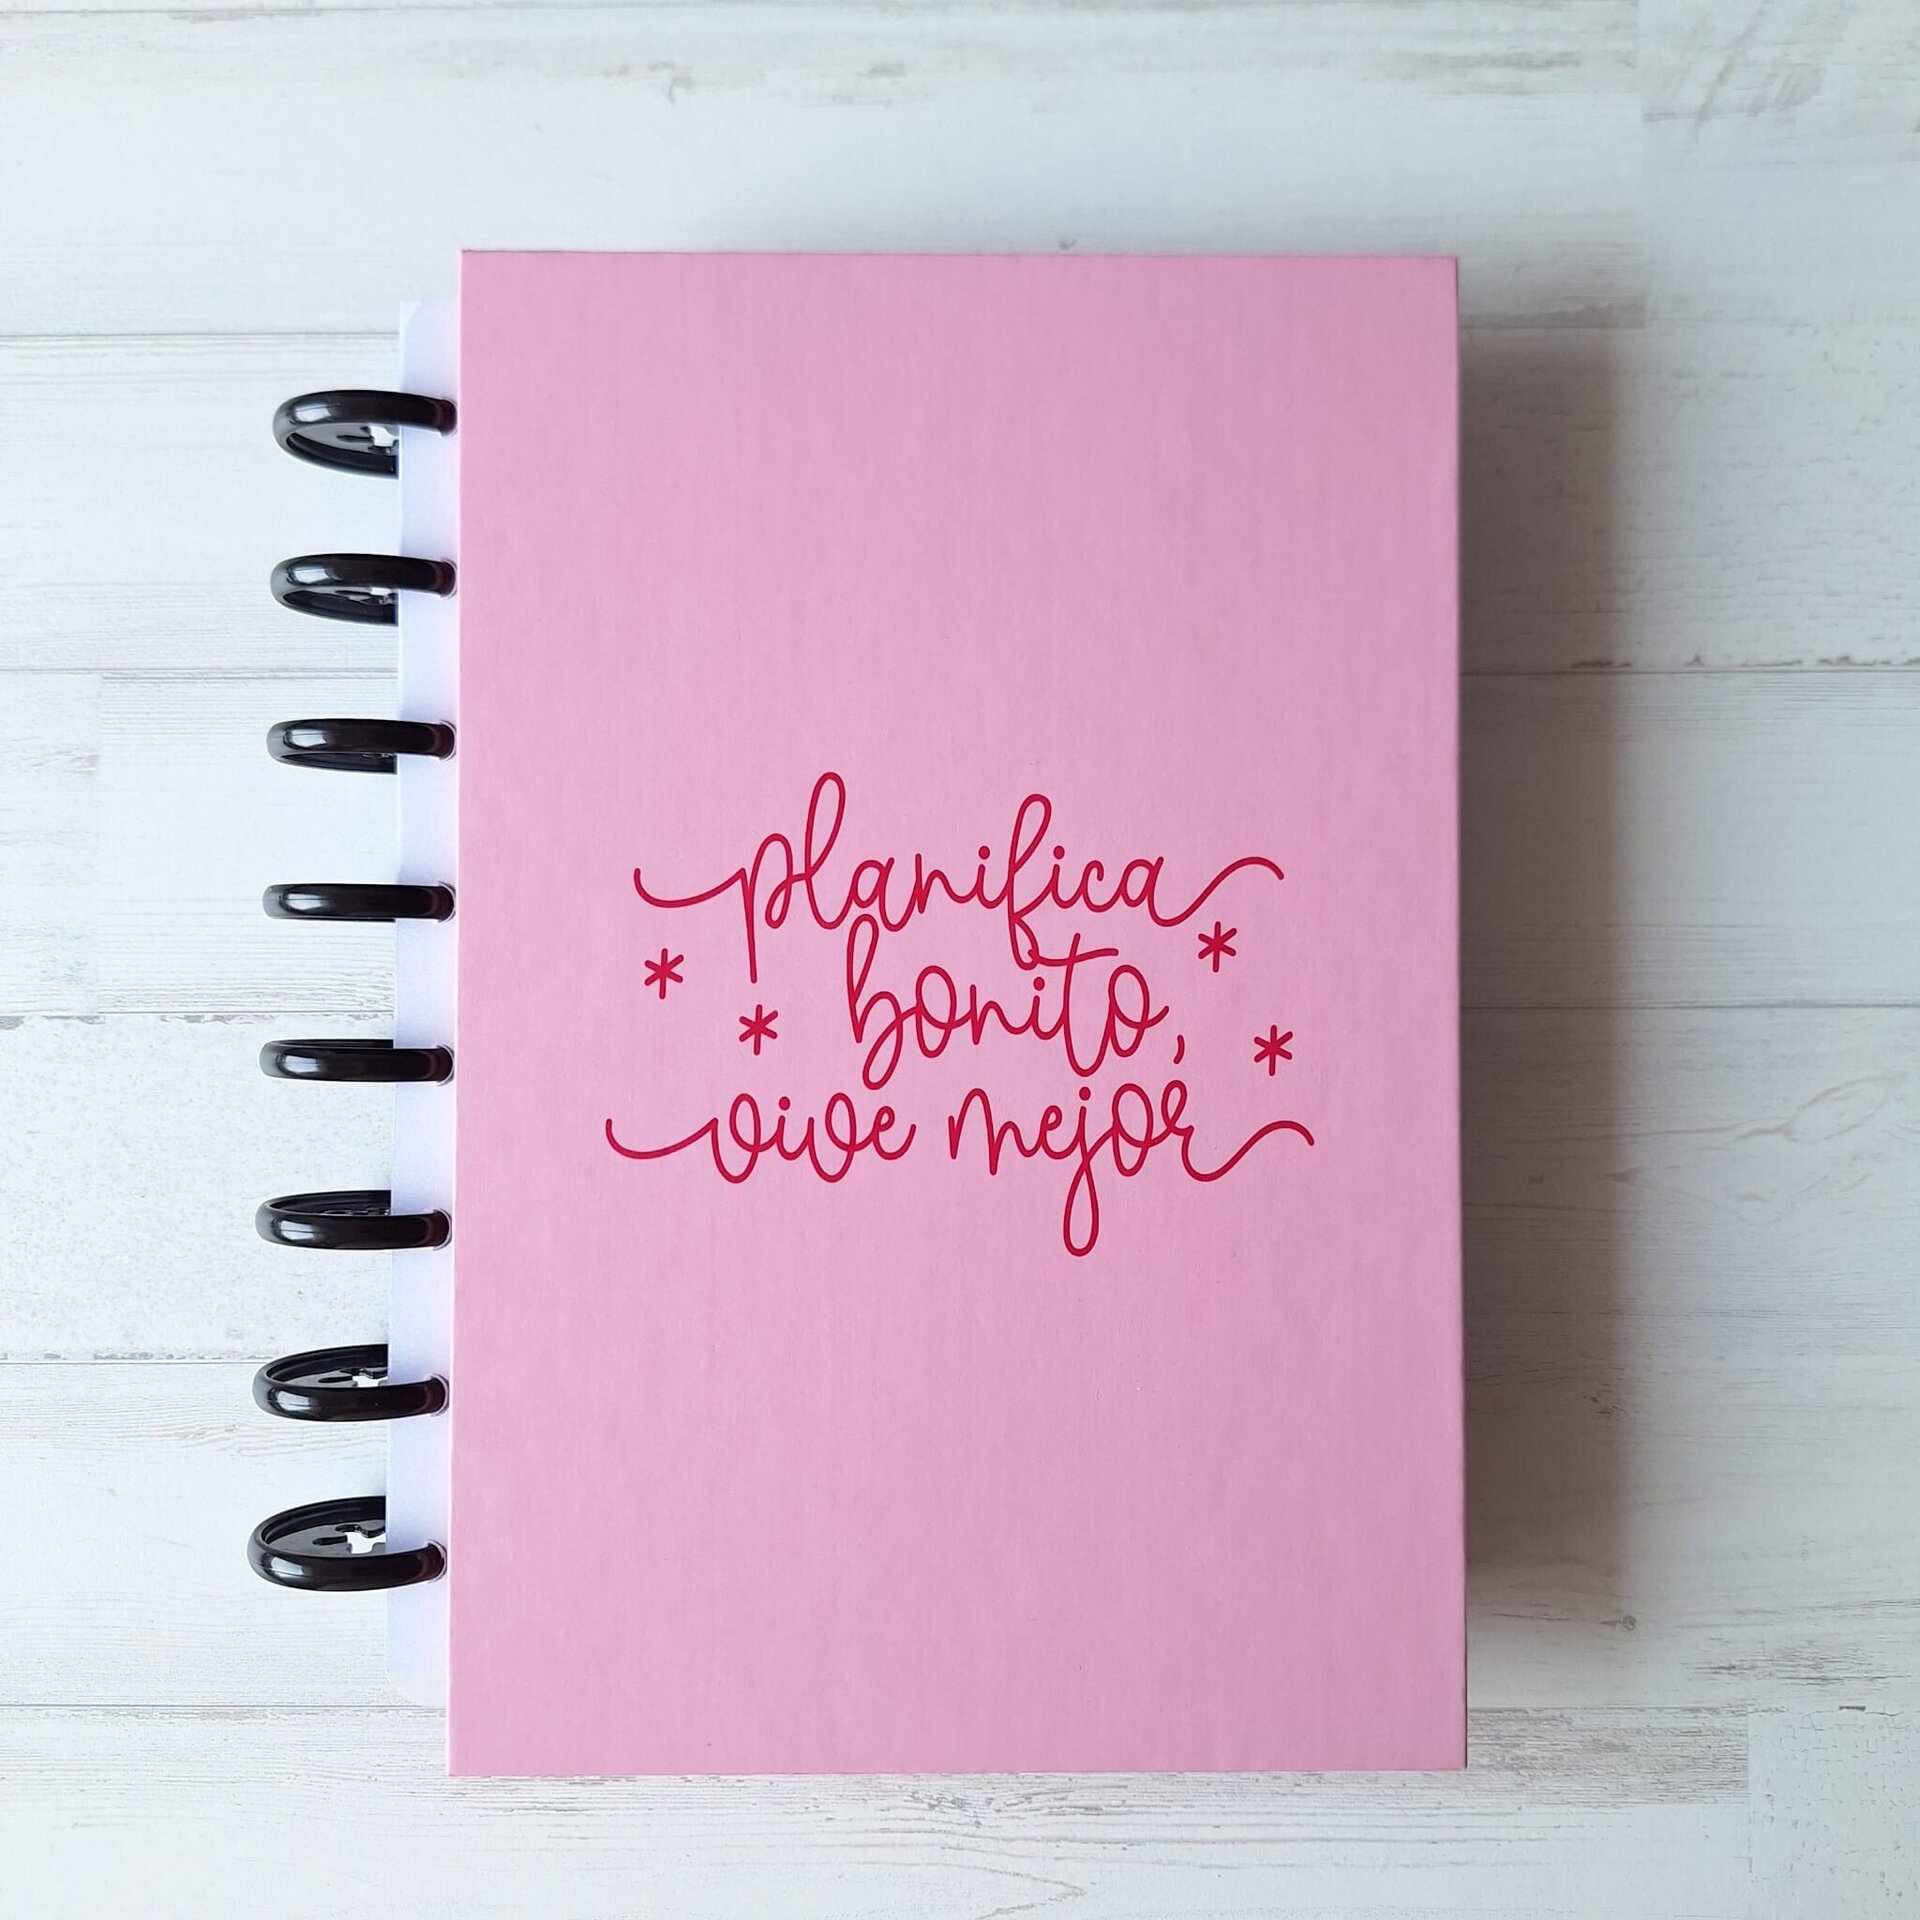 planifica
bonito,
vive mejor